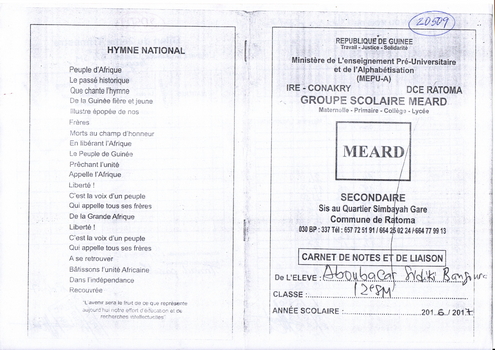 HYMNE NATIONAL
Peuple d'Afrique
Le passé historique
Que chante l'hymne
De la Guinée fière et jeune
Illustre épopée de nos
Frères
Morts au champ d'honneur
En libérant l'Afrique
Le Peuple de Guinée
Prêchant l'unité
Appelle l'Afrique
Liberté !
C'est la voix d'un peuple
Qui appelle tous ses frères
De la Grande Afrique
Liberté !
C'est la voix d'un peuple
Qui appelle tous ses frères
A se retrouver
Bâtissons l'unité Africaine
Dans l'indépendance
Recouvrée
"L'avenir sera le fruit de ce que représente
aujourd'hui notre effort d'éducation et de
recherches intellectuelles"
20509
REPUBLIQUE DE GUINEE
Travail - Justice - Solidarité
Ministère de L'enseignement Pré-Universitaire
et de l'Alphabétisation
(MEPU-A)
IRE - CONAKRY DCE RATOMA
GROUPE SCOLAIRE MEARD
Maternelle - Primaire - Collège - Lycée
MEARD
SECONDAIRE
Sis au Quartier Simbayah Gare
Commune de Ratoma
030 BP : 337 Tél : 657 72 51 91 / 664 25 02 24 / 664 77 99 13
CARNET DE NOTES ET DE LIAISON
De L'ELEVE : Aboubacar Sidiki Bangoura
CLASSE : 12eSM
ANNÉE SCOLAIRE : 2016/2017